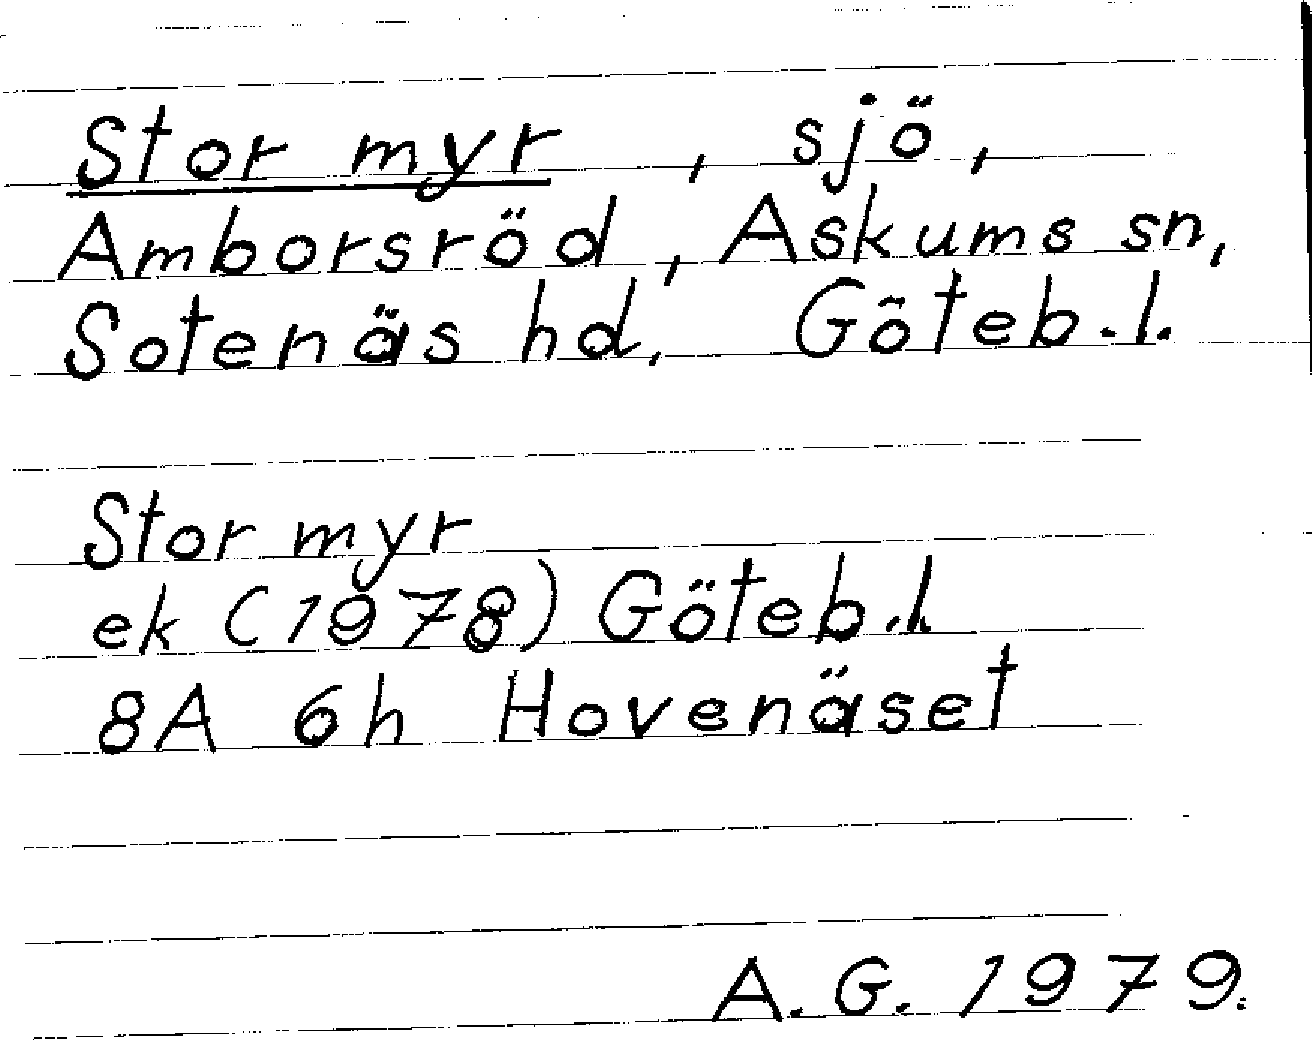 Stor myr, sjö,
Amborsröd, Askums sn,
Sotenäs hd, Göteb.l.
Stor myr
ek (1978) Göteb.l.
8A 6h Hovenäset
A.G. 1979.